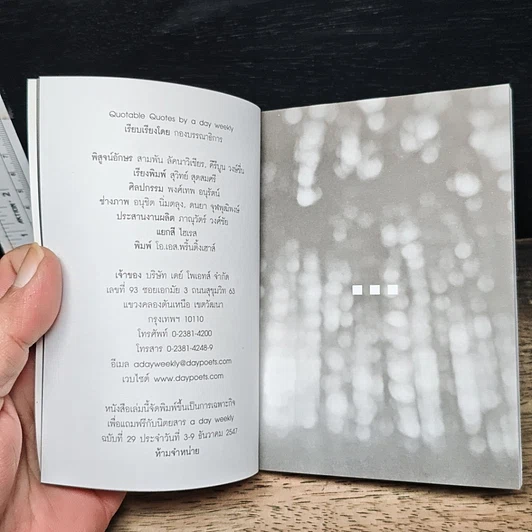 Quotable Quotes by a day weekly
เรียบเรียงโดย กองบรรณาธิการ
พิสูจน์อักษร สามพัน ลัคนาวิเชียร, ศิรินุน วงษ์ชื่น
เรียงพิมพ์ สุวิทย์ สุดสมศรี
ศิลปกรรม พงศ์เทพ อนุรัตน์
ช่างภาพ อนุชิต นิ่มตลุง, ดนยา จุฬพุฒิพงษ์
ประสานงานผลิต ภาณุวัตร์ วงศ์ชัย
แยกสี ไฮเรส
พิมพ์ โอ.เอส.พริ้นติ้งเฮาส์
เจ้าของ บริษัท เดย์ โพเอทส์ จำกัด
เลขที่ 93 ซอยเอกมัย 3 ถนนสุขุมวิท 63
แขวงคลองตันเหนือ เขตวัฒนา
กรุงเทพฯ 10110
โทรศัพท์ 0-2381-4200
โทรสาร 0-2381-4248-9
อีเมล adayweekly@daypoets.com
เวบไซต์ www.daypoets.com
หนังสือเล่มนี้จัดพิมพ์ขึ้นเป็นการเฉพาะกิจ
เพื่อแถมฟรีกับนิตยสาร a day weekly
ฉบับที่ 29 ประจำวันที่ 3-9 ธันวาคม 2547
ห้ามจำหน่าย